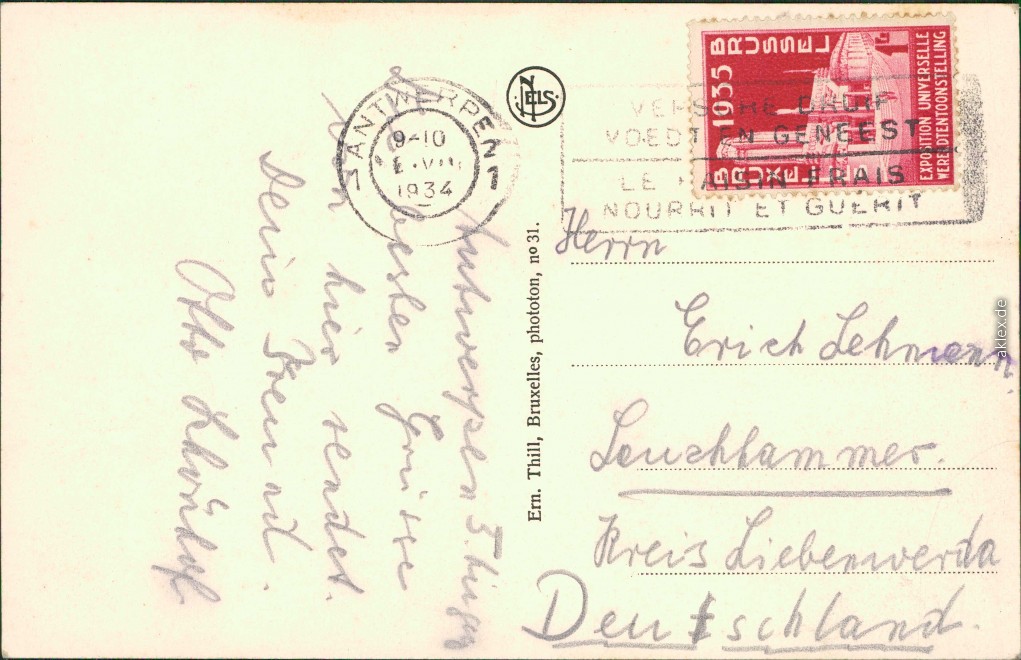 Die besten Grüsse
von hier sendet
Dein Freund
Otto
ANTWERPEN
9-10
1934
1
1
NELS
Ern. Thill, Bruxelles, phototon, nº 31.
1935
BRUSSEL
BRUXELLES
1F
EXPOSITION UNIVERSELLE
WERELDTENTOONSTELLING
VERSCHE DRUIF
VOEDT EN GENEEST
LE RAISIN FRAIS
NOURRIT ET GUERIT
Herrn
Erich Lehmann
Lauchhammer.
Kreis Liebenwerda
Deutschland.
aklex.de